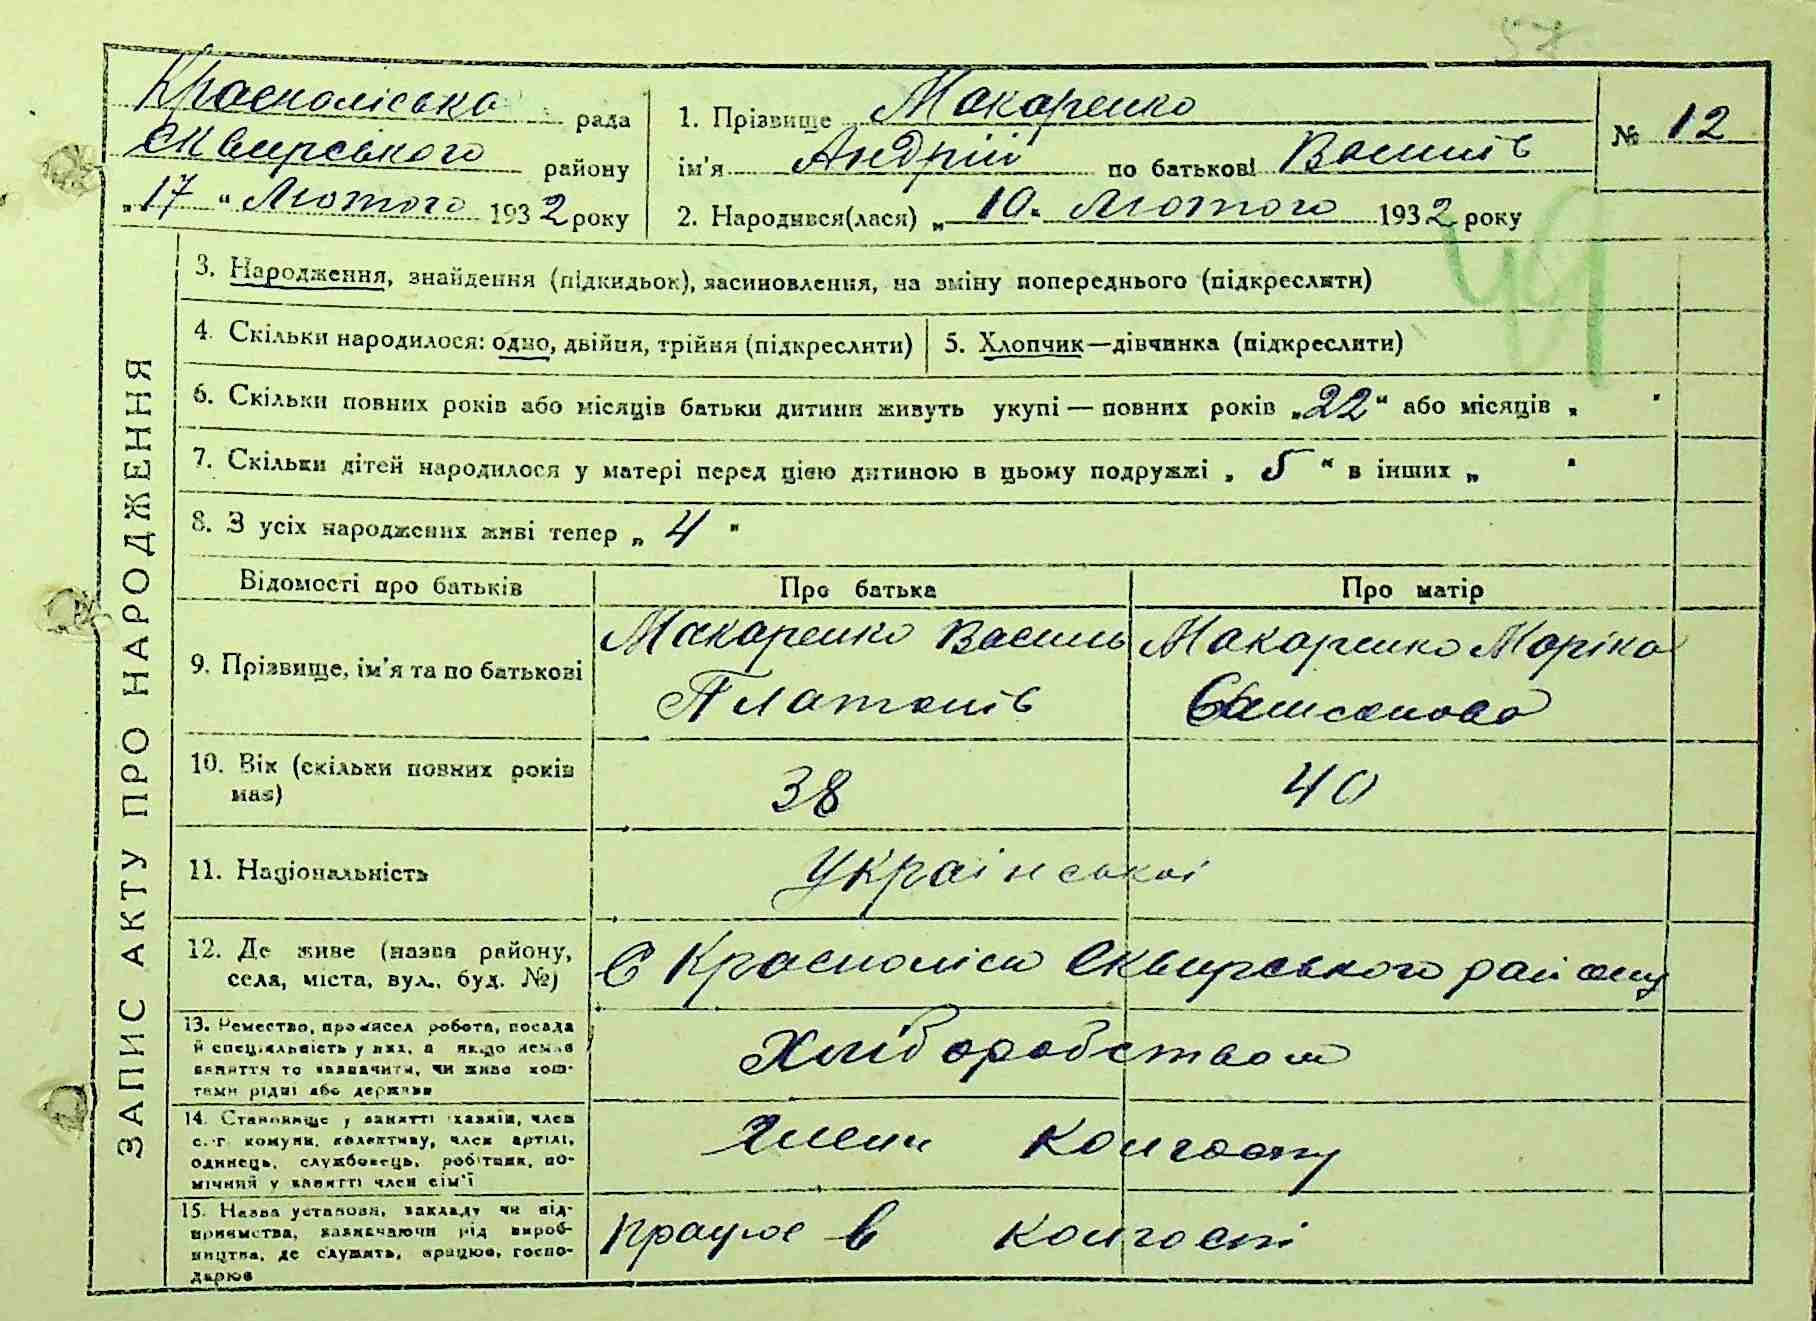 57
Красноліська рада
Сквирського району
„17“ Лютого 1932 року
1. Прізвище Макаренко
ім'я Андрій по батькові Василів
2. Народився(лася) „10“ Лютого 1932 року
№ 12
49
ЗАПИС АКТУ ПРО НАРОДЖЕННЯ
3. Народження, знайдення (підкидьок), засиновлення, на зміну попереднього (підкреслити)
4. Скільки народилося: одно, двійня, трійня (підкреслити)
5. Хлопчик—дівчинка (підкреслити)
6. Скільки повних років або місяців батьки дитини живуть укупі — повних років „22“ або місяців „ “
7. Скільки дітей народилося у матері перед цією дитиною в цьому подружжі „ 5 “ в інших „ “
8. З усіх народжених живі тепер „ 4 “
Відомості про батьків
Про батька
Про матір
9. Прізвище, ім'я та по батькові
Макаренко Василь
Платонів
Макаренко Маріна
Самсонова
10. Вік (скільки повних років
має)
38
40
11. Національність
Українські
12. Де живе (назва району,
села, міста, вул., буд. №)
С Красноліси Сквирського району
13. Ремество, промисел робота, посада
й спеціяльність у них, а якщо немає
заняття то зазначити, чи живе кош-
тами рідні або держави
Хліборобством
14. Становище у занятті хазяїн, член
с.-г. комуни, колективу, член артілі,
одинець, службовець, робітник, по-
мічний у занятті член сім'ї
Члени колгоспу
15. Назва установи, закладу чи під-
приємства, зазначаючи рід вироб-
ництва, де служить, працює, госпо-
дарює
працює в колгоспі